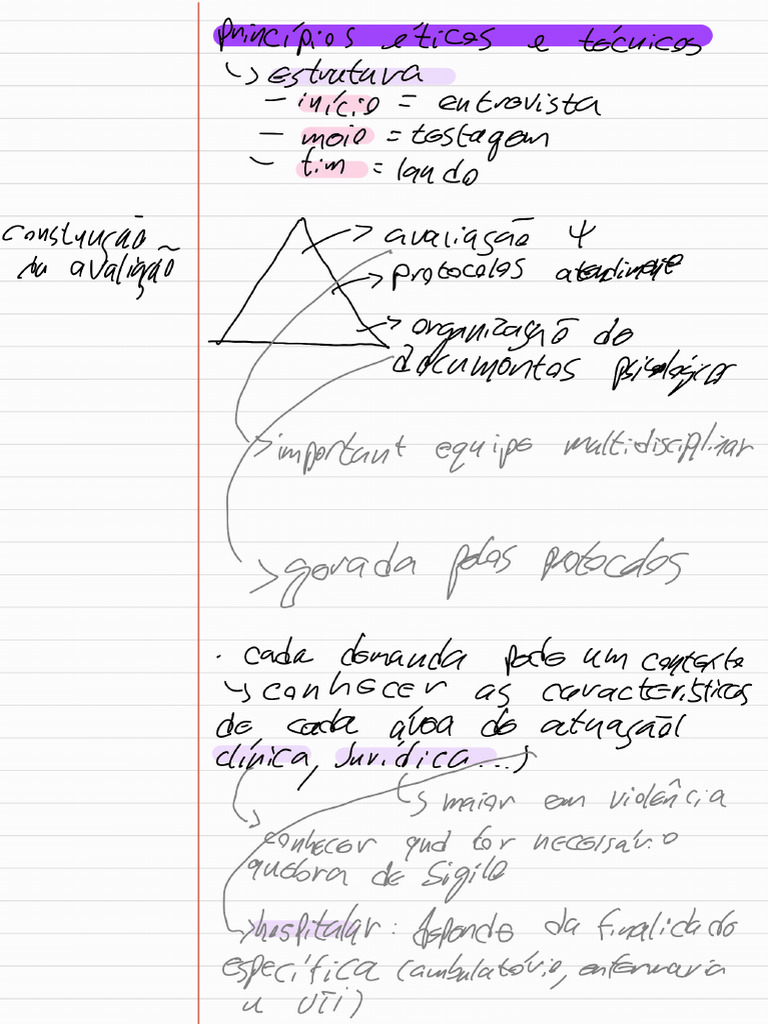 princípios éticos e técnicos
↳ estrutura
- início = entrevista
- meio = testagem
- fim = laudo
construção
da avaliação
→ avaliação Ψ
→ protocolos atendimento
→ organização de
documentos psicológicos
> important equipe multidisciplinar
> gerada pelos protocolos
· cada demanda pede um contexto
↳ conhecer as características
de cada área de atuação (
clínica, jurídica...)
↳ maior em violência
conhecer qnd for necessário
quebra de sigilo
> hospitalar: depende da finalidade
específica (ambulatório, enfermaria
u UTI)